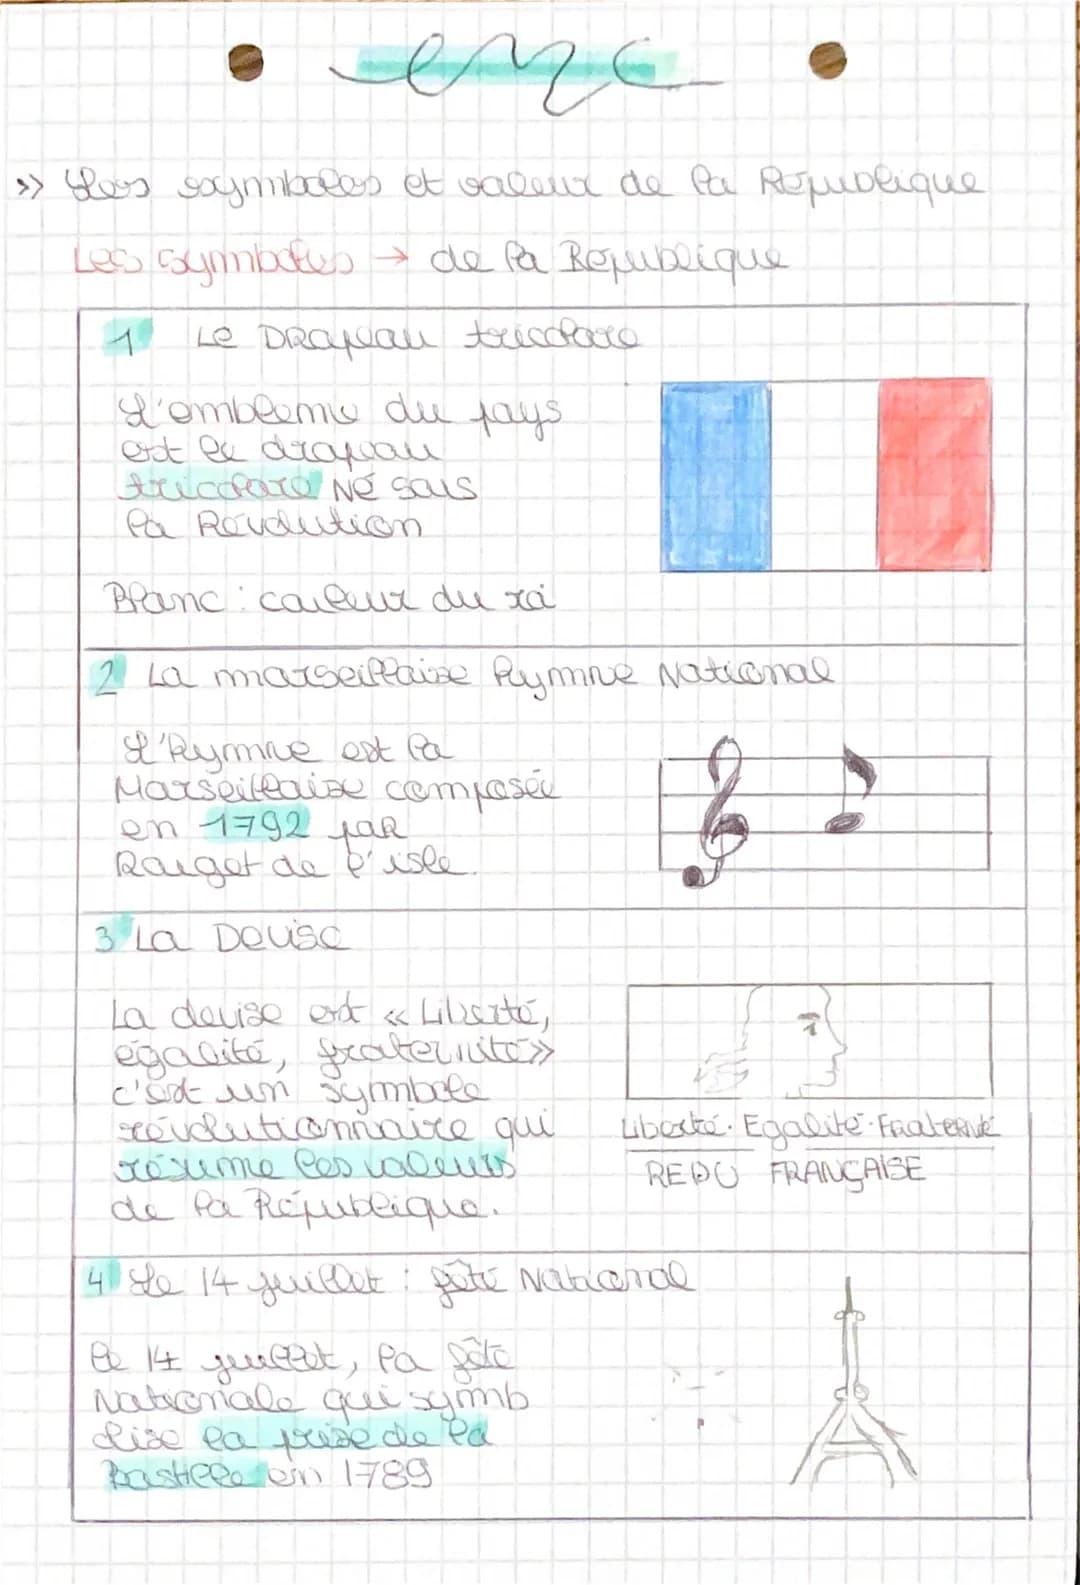 emc
>> Les symboles et valeur de la République
Les symboles → de la République
1 Le Drapeau tricolore
L'embleme du pays
est le drapeau
tricolore Né sous
la Révolution
Blanc : couleur du roi
2 La marseillaise hymne National
L'hymne est la
Marseillaise composée
en 1792 par
Rouget de l'isle.
3 La Devise
La devise est « Liberté,
égalité, fraternité»
c'est un symbole
révolutionnaire qui
résume les valeurs
de la République.
Liberté. Egalité. Fraternité
REPU FRANÇAISE
4 Le 14 juillet : fête National
le 14 juillet, la fête
Nationale qui symb
olise la prise de la
bastille en 1789